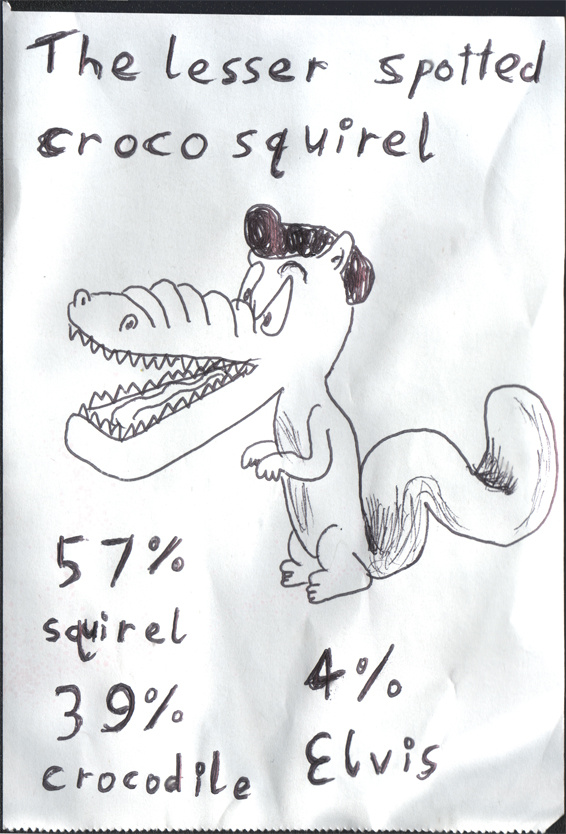 The lesser spotted
croco squirel
57%
squirel
39%
crocodile
4%
Elvis